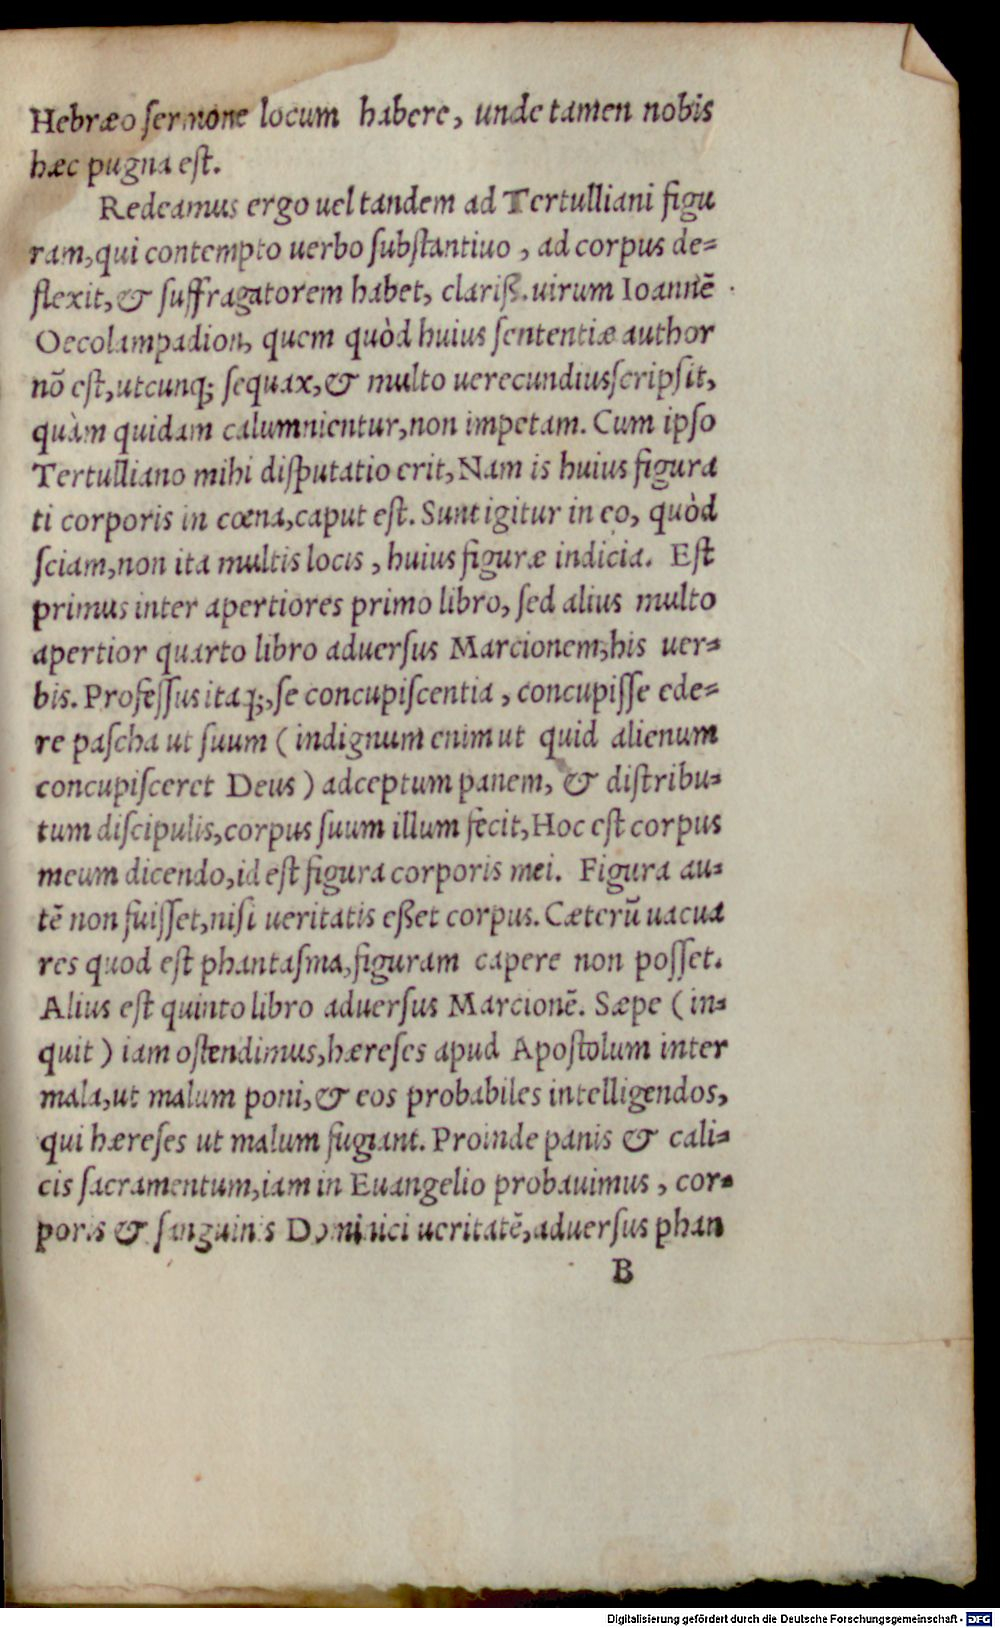 Hebræo sermone locum habere, unde tamen nobis
hæc pugna est.
Redeamus ergo uel tandem ad Tertulliani figu
ram, qui contempto uerbo substantiuo, ad corpus de=
flexit, & suffragatorem habet, clariß. uirum Ioannē
Oecolampadion, quem quòd huius sententiæ author
nō est, utcunq; sequax, & multo uerecundius scripsit,
quàm quidam calumnientur, non impetam. Cum ipso
Tertulliano mihi disputatio erit, Nam is huius figura
ti corporis in cœna, caput est. Sunt igitur in eo, quòd
sciam, non ita multis locis, huius figuræ indicia. Est
primus inter apertiores primo libro, sed alius multo
apertior quarto libro aduersus Marcionem, his uer=
bis. Professus itaq;, se concupiscentia, concupisse ede=
re pascha ut suum (indignum enim ut quid alienum
concupisceret Deus) adceptum panem, & distribu=
tum discipulis, corpus suum illum fecit, Hoc est corpus
meum dicendo, id est figura corporis mei. Figura au=
tē non fuisset, nisi ueritatis eßet corpus. Cæterū uacua
res quod est phantasma, figuram capere non posset.
Alius est quinto libro aduersus Marcionē. Sæpe (in=
quit) iam ostendimus, hæreses apud Apostolum inter
mala, ut malum poni, & eos probabiles intelligendos,
qui hæreses ut malum fugiant. Proinde panis & cali=
cis sacramentum, iam in Euangelio probauimus, cor=
poris & sanguinis Dominici ueritatē, aduersus phan
B
Digitalisierung gefördert durch die Deutsche Forschungsgemeinschaft - DFG